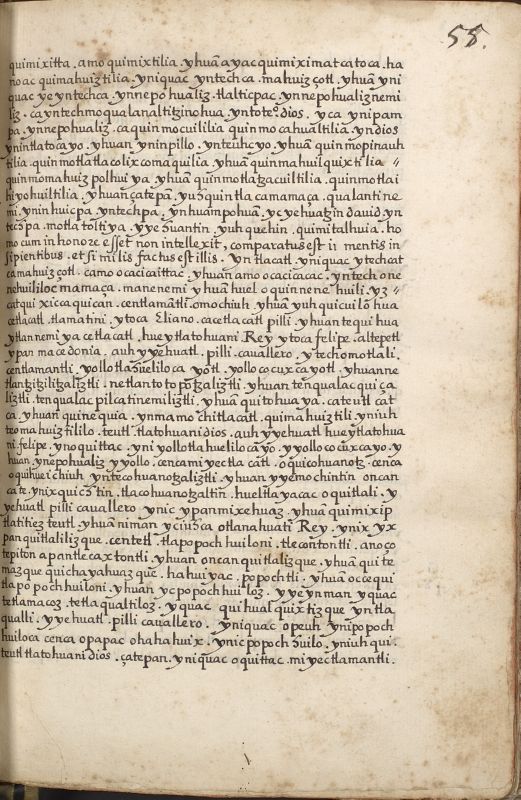 58.
quimixitta . amo quimixtilia . yhuā ayac quimixīmatcatoca . ha
no ac quimahuiztilia . yniquac yntech ca . mahuizçotl . yhuā yni
quac ye yntech ca . ynnepohualiz . tlalticpac . ynnepohualiznemi
liz . ca yntechmoqualanaltitzinohua . ynto teº. dios . yca ynipam
pa . ynnepohualiz . ca quinmocuililia quinmocahualtilia . yn dios
ynintlatocayo . yhuan yninpillo . ynteuhcyo . yhuā quinmopinauh
tilia . quinmotlatlacolixcomaquilia . yhuā quinmahuilquixtilia
quinmomahuizpolhuiya . yhuā quinmotlatzacuiltilia . quinmotlai
hiyohuiltilia . yhuan çatepā . yuhquintlacamamaça . qualantine
mi . ynin huicpa . yntechpa . ynhuampohuā . yc yehuatzin dauid yn
techpa . motlatoltiya . yye huantin . yuh quehin . quimitalhuia . ho
mo cum in honore esset non intellexit, comparatus est iumentis in
sipientibus . et similis factus est illis . yn tlacatl . yniquac ytech cat
ca mahuizçotl . camo ocacicaittac . yhuan amo ocacicacac . yntech one
nehuililoc mamaça . manenemi yhuā huel oquinnenehuili . yz
catqui xiccaquican . centlamātli . omochiuh . yhuā yuh quicuiloā hua
ce tlacatl . tlamatini . ytoca Eliano . ca ce tlacatl pilli . yhuan tequihua
ytlan nemiya ce tlacatl . huey tlatohuani . Rey . ytoca felipe . altepetl
ypan macedonia . auh yyehuatl . pilli . cauallero . ytech omotlali .
centlamantli . yollotlahueliloca yotl . yollococuxcayotl . yhuan ne
tlantzitzilitzaliztli . netlantotopotzaliztli . yhuan tenqualacquiça
liztli . tenqualac pilcatinemiliztli . yhuā quitohuaya . ca teutl cat
ca . yhuan quinequia . ynma mochi tlacatl . quimahuiztili yniuh
teomahuiztililo . teutl . tlatohuani dios . auh yyehuatl huey tlatohua
ni . felipe . ynoquittac . yniyollotlahuelilocāyo . yyollococuxcayo . y
huan . ynepohualiz yyollo . cenca miyectlacatl . oquicohuanotz . cenca
oquihueichiuh yntecohuanotzaliztli . yhuan yyemochintin oncan
cate . ynixquichtin . tlacohuanotzaltin . huel tlayacac oquitlali . y
yehuatl pilli cauallero . ynic ypan mixehuaz . yhuā quimixip
tlatitiez teutl . yhuā niman yciuhca otlanahuati Rey . ynixyx
panquitlaliliqȝ . centetl . tlapopochhuiloni . tlecontontli . anoço
tepiton apantlecaxtontli . yhuan oncan quitlalizqȝ . yhuā quite
mazqȝ quichayahuazqȝ . ahuiyac . popochtli . yhuā occequi
tlapopochhuiloni . yhuan yc popochhuiloz . yyeynman yquac
tetlamacoz . tetlaqualtiloz . yquac quihualquixtizqȝ yntla
qualli . yyehuatl . pilli cauallero . yniquac opeuh ynipopoch
huiloca cenca opapac ohahahuix . ynic popochhuilo . yniuhqui .
teutl tlatohuani dios . çatepan . yniquac oquittac . miyectlamantli .